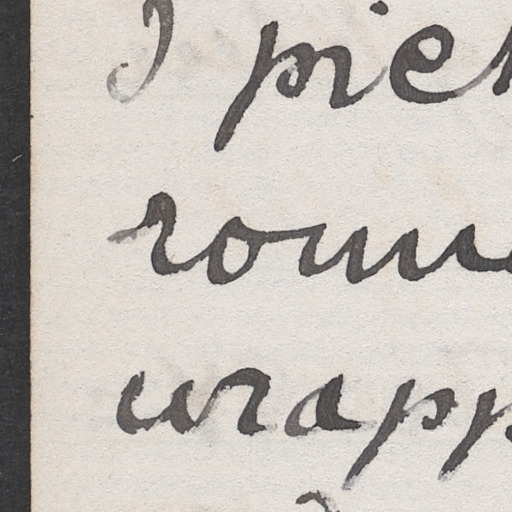 I pie
roun
wrapp